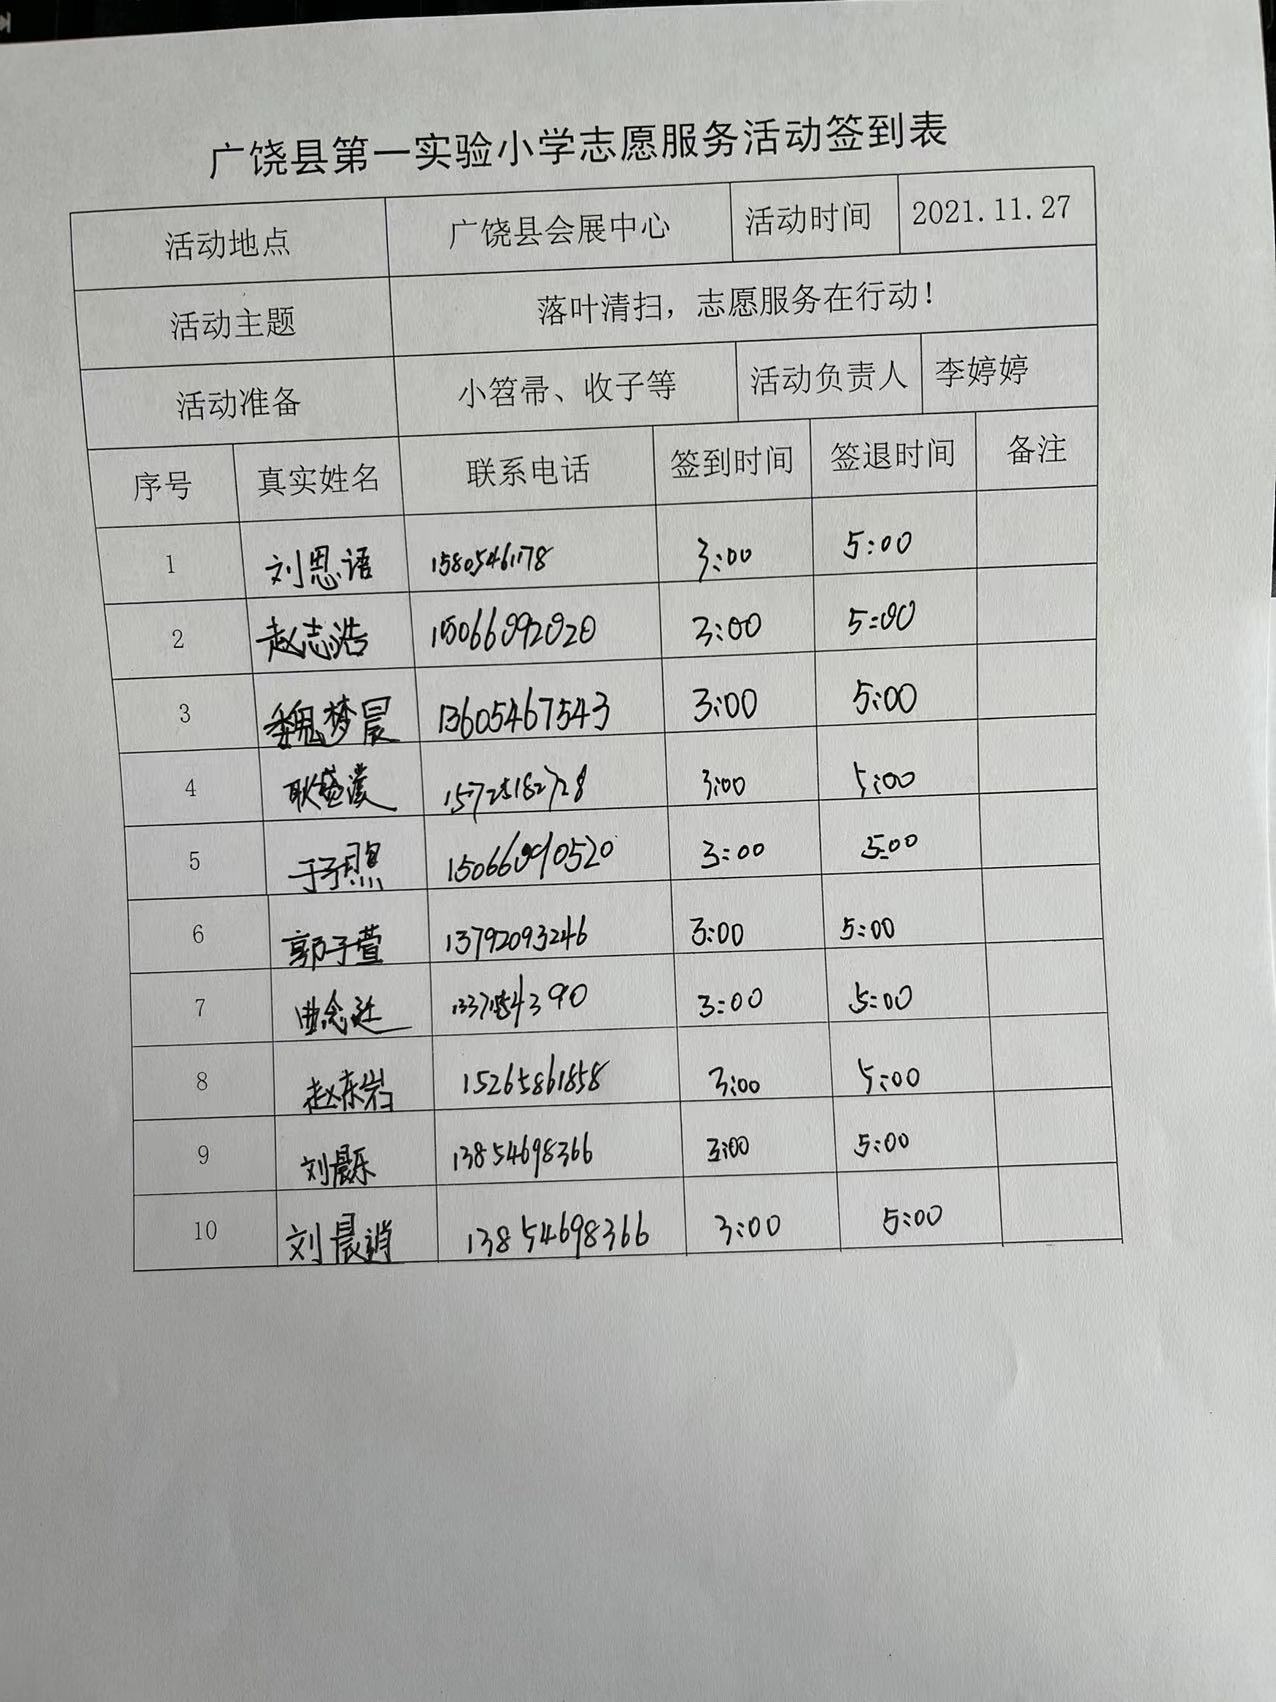 广饶县第一实验小学志愿服务活动签到表
活动地点 广饶县会展中心 活动时间 2021.11.27
活动主题 落叶清扫，志愿服务在行动！
活动准备 小笤帚、收子等 活动负责人 李婷婷
序号 真实姓名 联系电话 签到时间 签退时间 备注
1 刘恩语 1580546178 3:00 5:00
2 赵志浩 15066092020 3:00 5:00
3 魏梦晨 13605467543 3:00 5:00
4 15725182728 3:00 5:00
5 于子照 15066090520 3:00 5:00
6 郭子萱 13792093246 3:00 5:00
7 3:00 5:00
8 赵东岩 15265861858 3:00 5:00
9 刘晨乐 13854698366 3:00 5:00
10 刘晨逍 13854698366 3:00 5:00